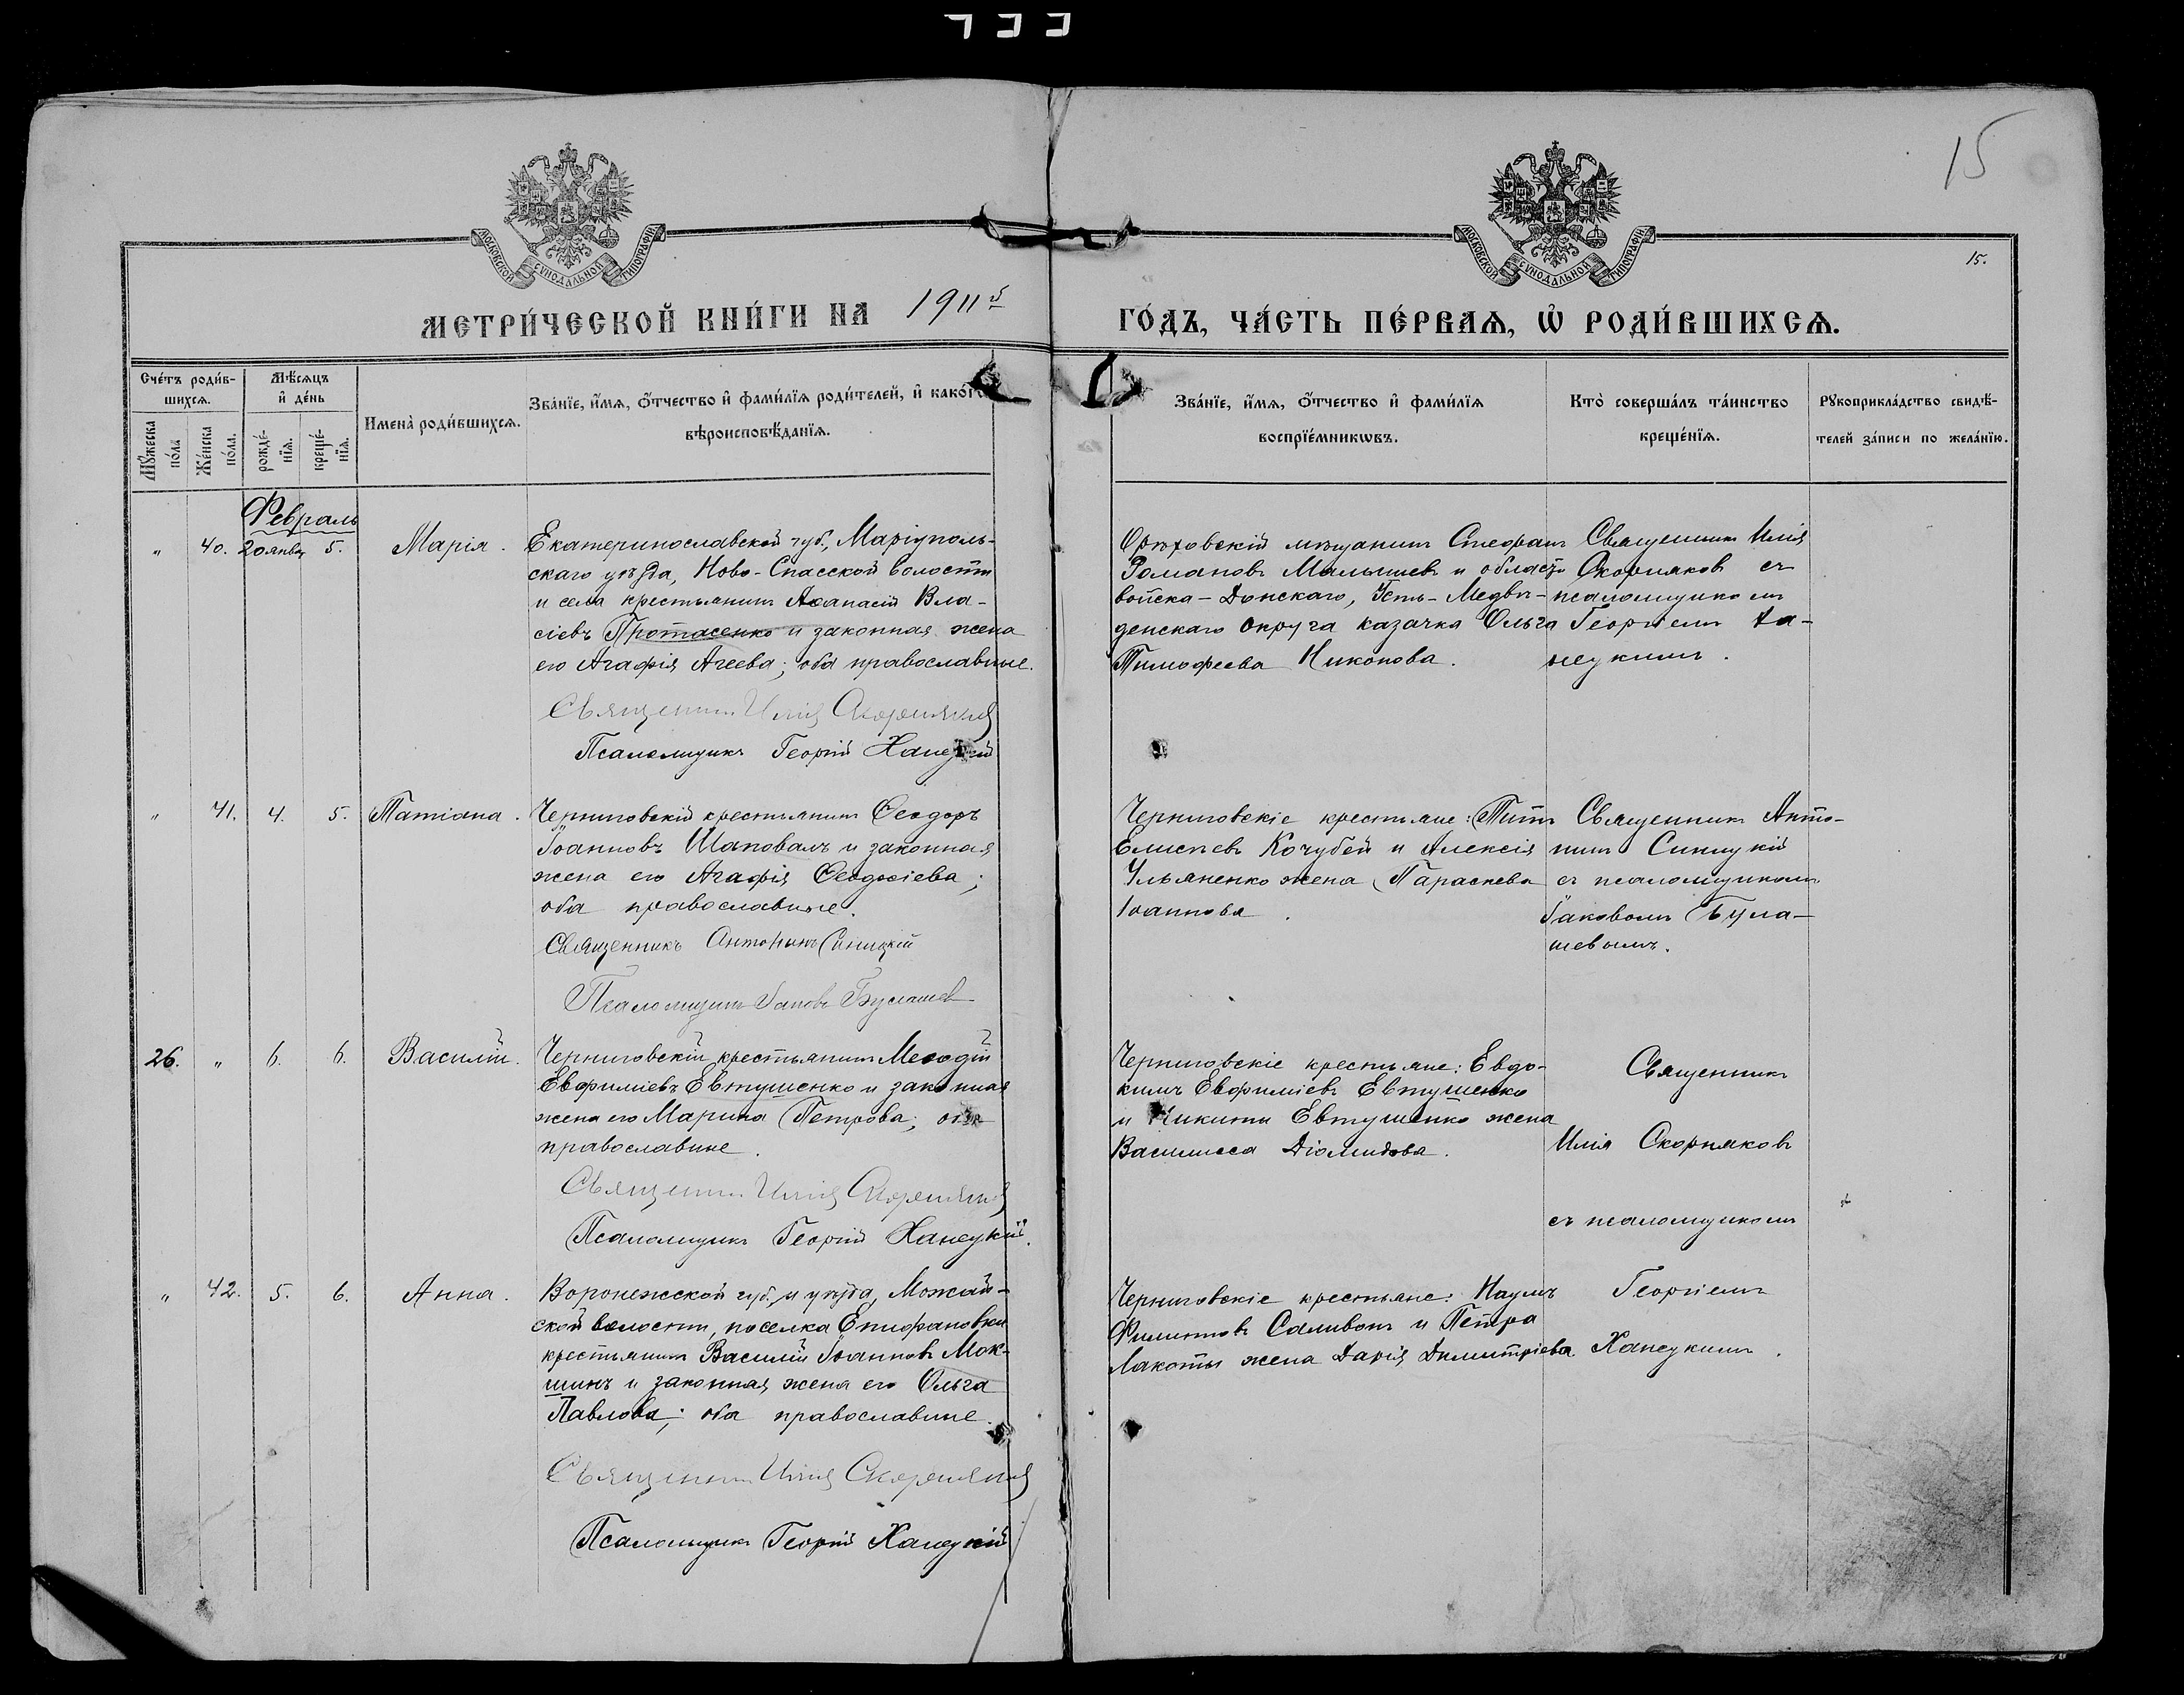 15
МОСКОВСКОЙ СѴНОДАЛЬНОЙ ТИПОГРАФІИ
МОСКОВСКОЙ СѴНОДАЛЬНОЙ ТИПОГРАФІИ
15.
МЕТРИ́ЧЕСКОЙ КНИ́ГИ НА 1911й ГО́ДЪ, ЧА́СТЬ ПЕ́РВАѦ, Ѡ҆ РОДИ́ВШИХСѦ.
Сче́тъ роди́в-
шихсѧ.
Мꙋ́жеска по́ла
Же́нска по́ла.
Мѣ́сѧцъ
и҆ де́нь
рожде́-
нїѧ.
креще́-
нїѧ.
Имена̀ роди́вшихсѧ.
Зва́нїе, и҆́мѧ, ѻ҆́тчество и҆ фами́лїѧ роди́телей, и҆ како́гѡ
вѣроисповѣ́данїѧ.
Зва́нїе, и҆́мѧ, ѻ҆́тчество и҆ фами́лїѧ
воспрїе́мникѡвъ.
Кто̀ соверша́лъ та́инство
креще́нїѧ.
Рꙋкоприкла́дство свидѣ́-
телей за́писи по жела́нїю.
Февраль
" 40. 20 янвр 5. Марія.
Екатеринославской губ., Маріуполь-
скаго уѣзда, Ново-Спасской волости
и села крестьянинъ Аѳанасій Вла-
сіевъ Протасенко и законная жена
его Агафія Агеева; оба православные.
Священникъ Илія Скорняковъ
Псаломщикъ Георгій Ханецкій
Орѣховскій мѣщанинъ Стефанъ
Романовъ Малышевъ и области
войска-Донскаго, Усть-Медвѣ-
дескаго округа казачка Ольга
Тимофеева Никонова.
Священникъ Илія
Скорняковъ съ
псаломщикомъ
Георгіемъ Ха-
нецкимъ.
" 41. 4. 5. Татіана.
Черниговскій крестьянинъ Ѳеодоръ
Іоанновъ Шаповалъ и законная
жена его Агафія Ѳеодосіева;
оба православные.
Священникъ Антонинъ Синицкій
Псаломщикъ Іаковъ Булашев
Черниговскіе крестьяне: Титъ
Елисѣевъ Кочубей и Алексія
Ульяненко жена Параскева
Іоаннова.
Священникъ Анто-
нинъ Синицкій
съ псаломщикомъ
Іаковомъ Була-
шевымъ.
26. " 6. 6. Василій.
Черниговскій крестьянинъ Меѳодій
Евфиміевъ Евтушенко и законная
жена его Марина Петрова; оба
православные.
Священникъ Илія Скорняковъ
Псаломщикъ Георгій Ханецкій.
Черниговскіе крестьяне: Евдо-
кимъ Евфиміевъ Евтушенко
и Никиты Евтушенко жена
Василисса Діомидова.
Священникъ
Илія Скорняковъ
съ псаломщикомъ
Георгіемъ
Ханецкимъ.
" 42. 5. 6. Анна.
Воронежской губ. и уѣзда, Можай-
ской волости, поселка Епифановки
крестьянинъ Василій Іоанновъ Мок-
шинъ и законная жена его Ольга
Павлова; оба православные.
Священникъ Илія Скорняковъ
Псаломщикъ Георгій Ханецкій
Черниговскіе крестьяне: Наумъ
Филипповъ Саливонъ и Петра
Лакоты жена Дарія Димитріева